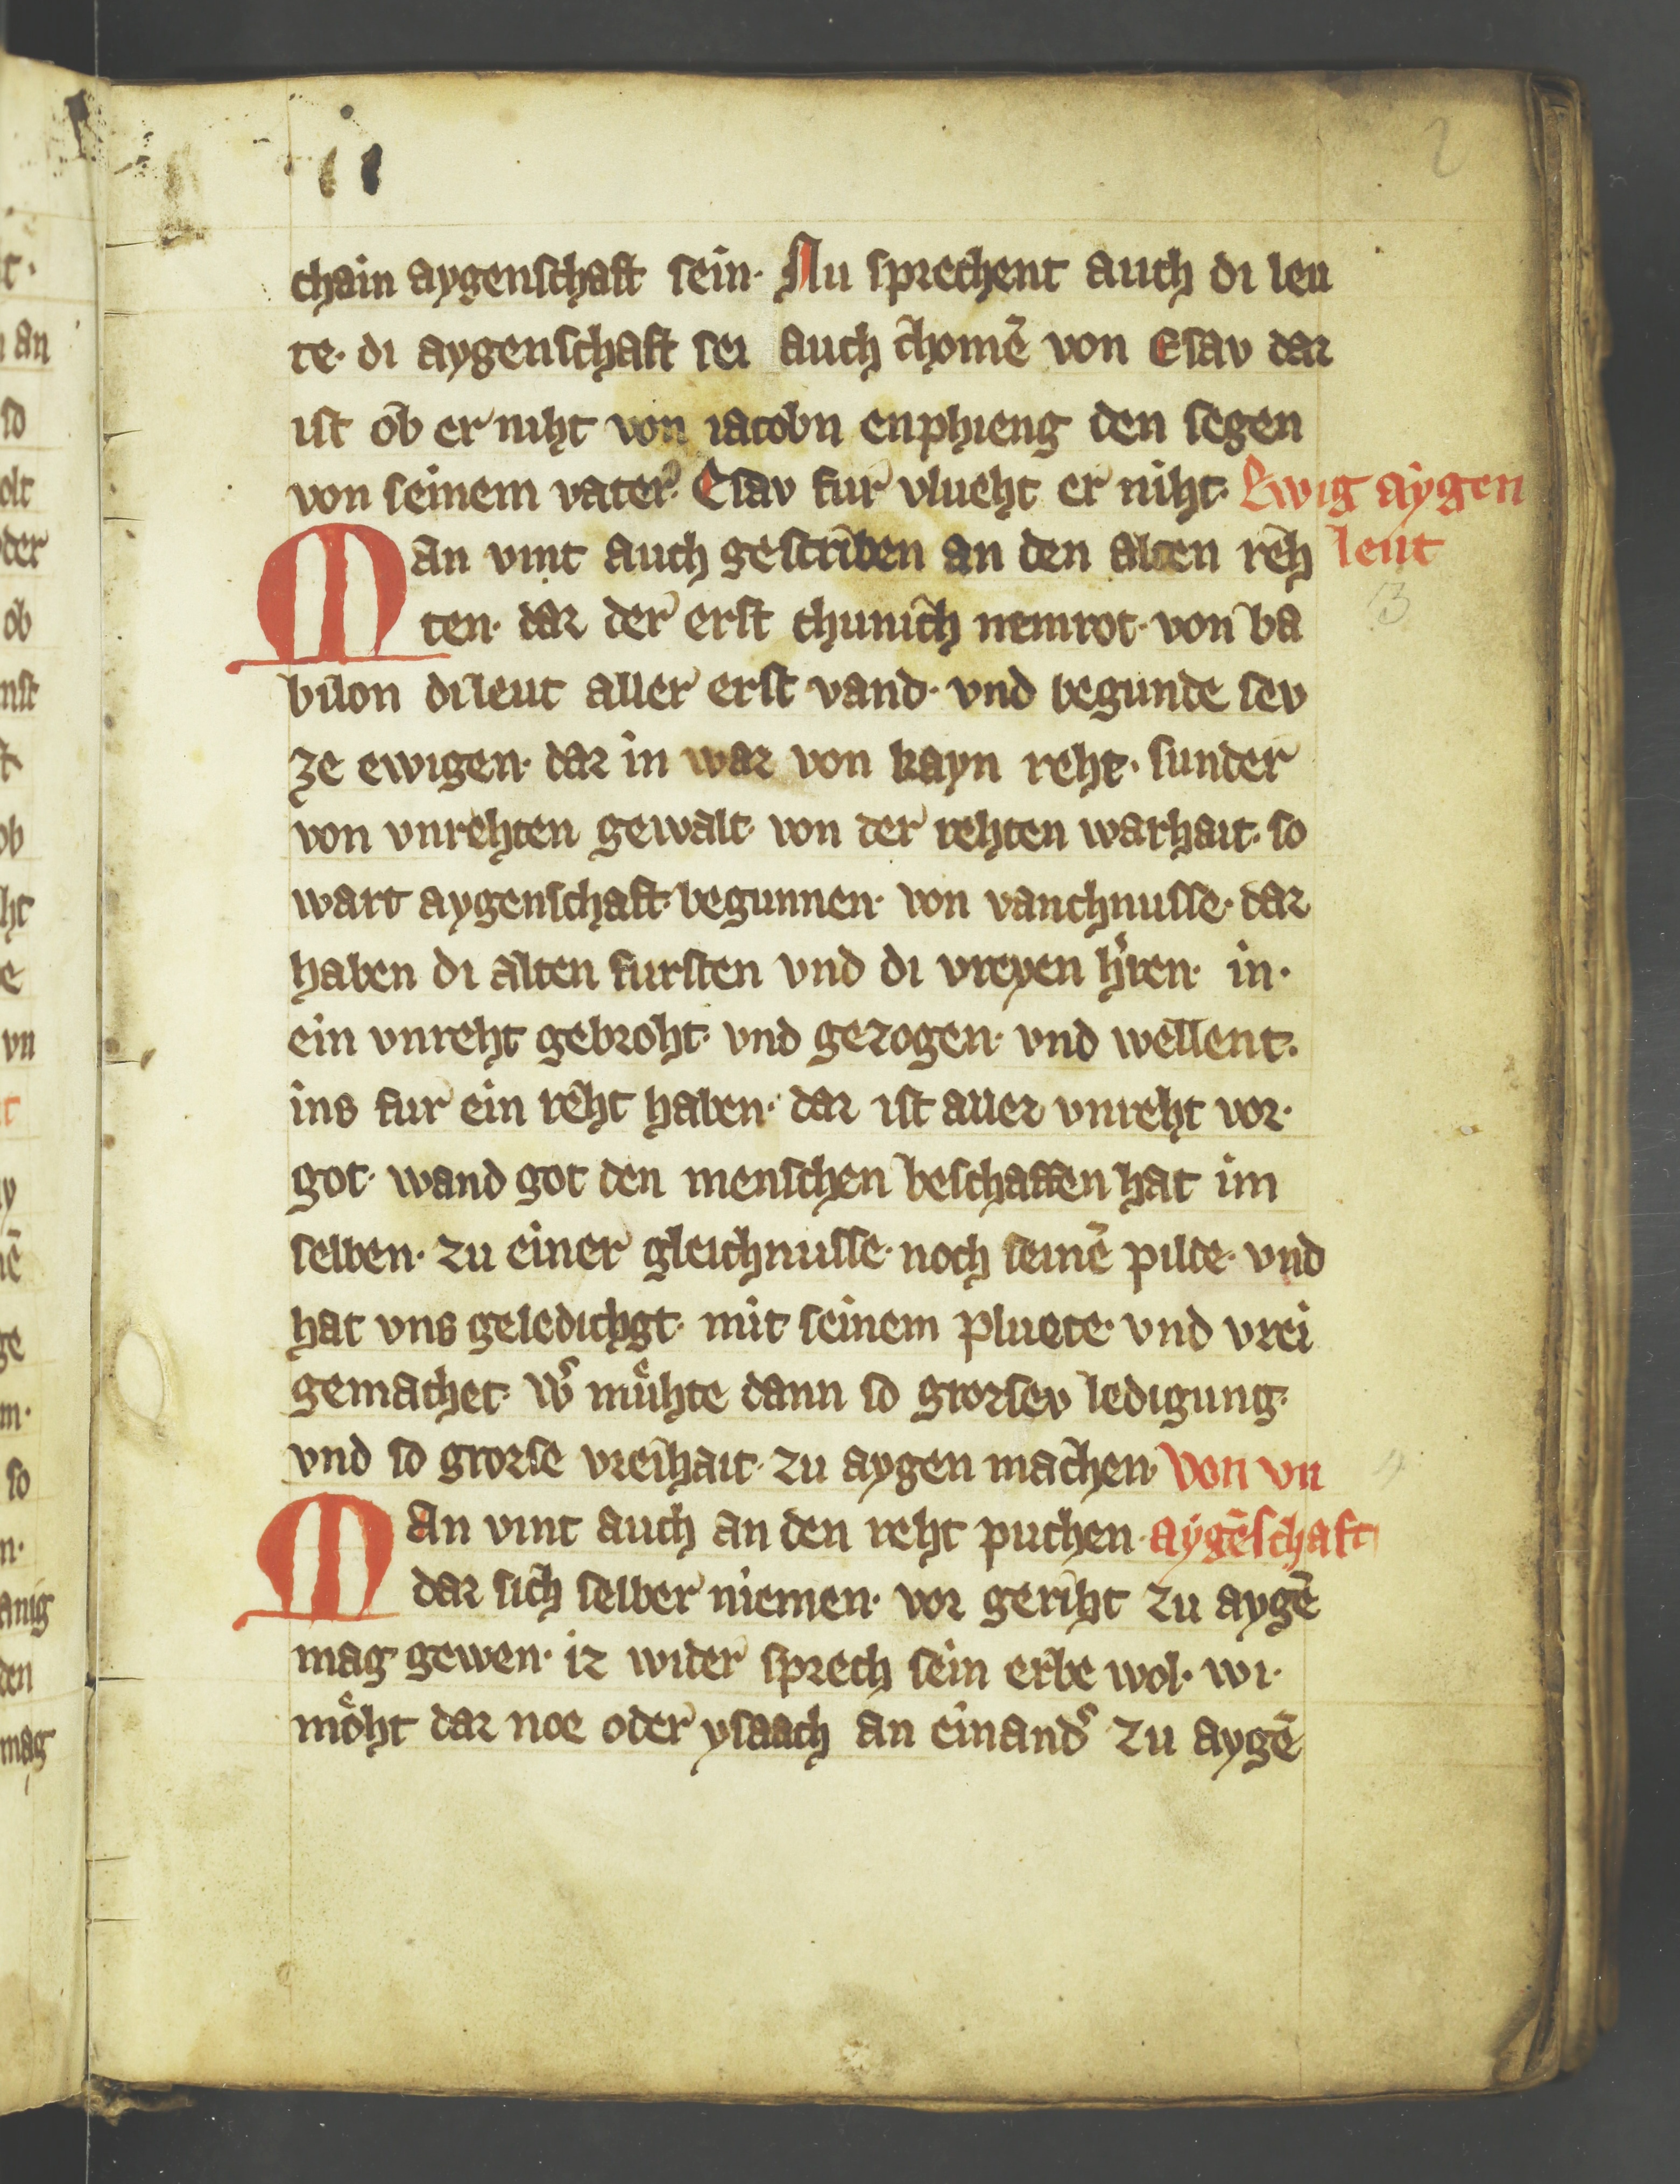 2
chain aygenschaft sein· Nu sprechent auch di leu
te· di aygenschaft sei auch chomē von Esav daz
ist ob er niht von iacobn enphieng den segen
von seinem vater· Esav fur vlueht er niht· Ewig aygen
Man vint auch gescriben an den alten reh leut
ten· daz der erst chunich nemrot· von ba
bilon dileut aller erst vand· vnd begunde sev
ze ewigen· daz in waz von kayn reht· sunder
von vnrehten gewalt· von der rehten warhait· so
wart aygenschaft· begunnen· von vanchnusse· daz
haben di alten fursten vnd di vreyen h'ren· in·
ein vnreht gebroht· vnd gezogen· vnd wellent·
ins fur ein reht haben· daz ist allez vnreht vor·
got· wand got den menschen beschaffen hat im
selben· zu einer gleichnusse· noch seinē pilde· vnd
hat vns geledichgt· mit seinem pluete· vnd vrei
gemachet· w' muͤhte dann so grozsev ledigung·
vnd so grozse vreihait· zu aygen machen· Von vn
Man vint auch an den reht puchen· aygēschaft
daz sich selber niemen· vor geriht zu aygē
mag gewen· iz wider sprech sein erbe wol· wi·
moͤht daz noe oder ysaach an einand' zu aygē